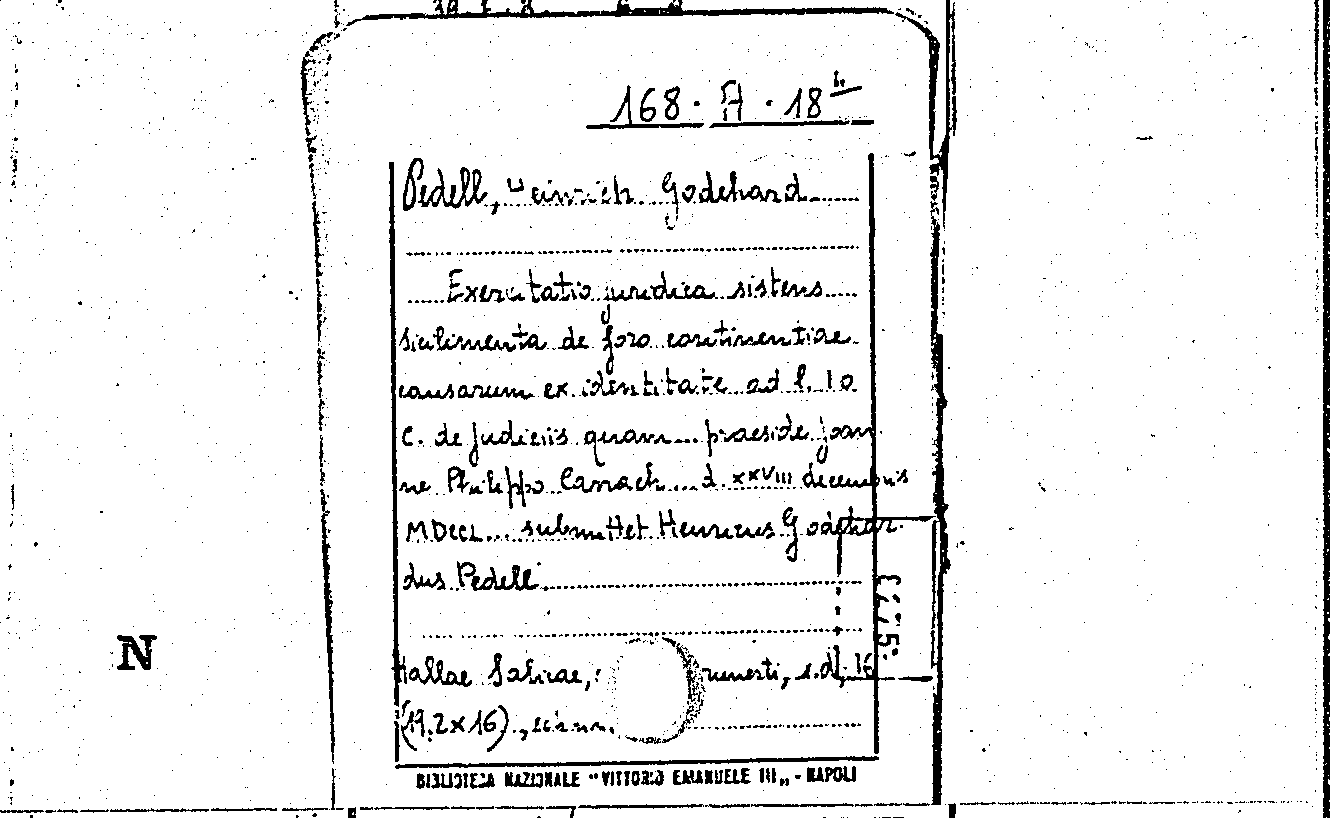 168. A. 18
Pedell, Heinrich Godehard
Exercitatio juridica sistens
de foro continentiae
causarum ex identitate ad l. 10
C. de Judiciis quam... praeside Joan
ne Philippo Carrach... d. XXVIII decembris
MDCCL... submittet Henricus Godehar-
dus Pedell
Hallae Salicae,
(19,2x16).,
BIBLIOTECA NAZIONALE "VITTORIO EMANUELE III„ - NAPOLI
N